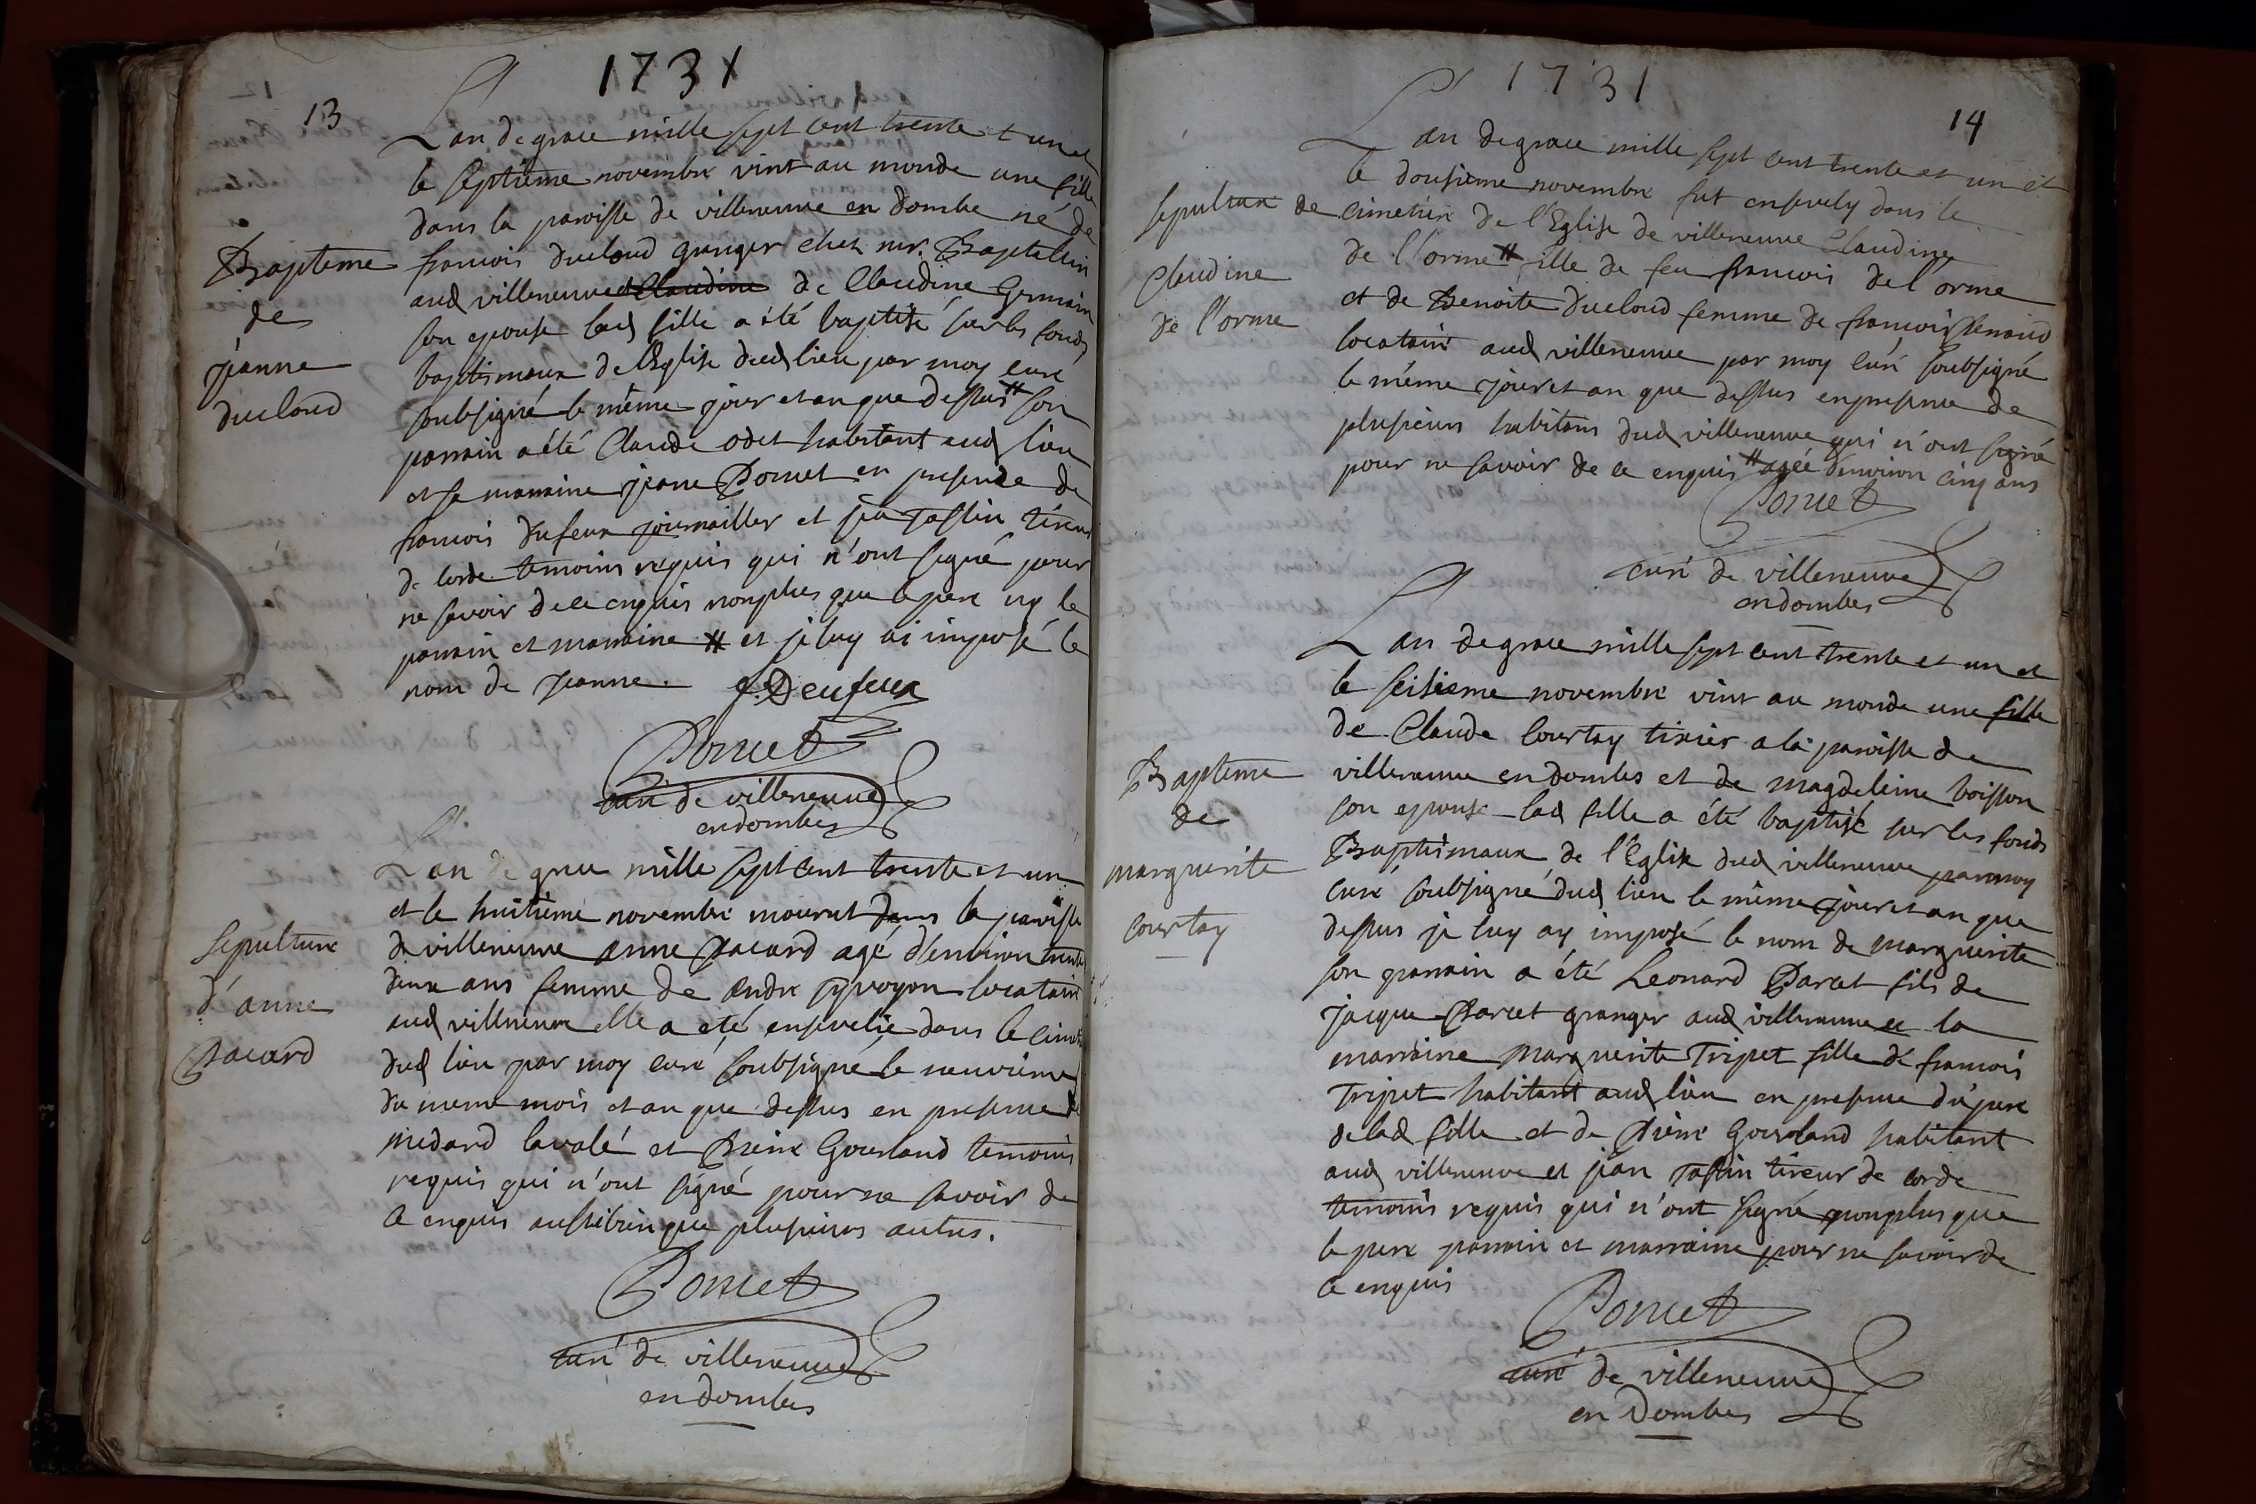 1731
13
L'an de grace mille sept cent trente et un et
le septième novembre vint au monde une fille
dans la paroisse de villeneuve en dombe né de
francois ducloud granger chez mr. Baptallin
aud villeneuve et Claudine de Claudine Germain
son epouse lad fille a été baptisé sur les fonds
baptismaux de l'Eglise dud lieu par moy curé
soubsigné le même jour et an que dessus # son
parrain a été Claude odet habitant aud lieu
et sa marraine jeane Poncet en presence de
francois dufeux journaillier et jean Taslin tireur
de corde temoins requis qui n'ont signé pour
ne savoir de ce enquis nonplus que le pere ny le
parrain et marraine # et je luy ai imposé le
nom de jeanne. f. Deufeux
Poncet
curé de villeneuve
en dombes
Bapteme
de
jeanne
ducloud
L'an de grace mille sept cent trente et un
et le huitième novembre mourut dans la paroisse
de villeneuve anne Pacard agé d'environ trente
deux ans femme de andre pvoyon locataire
aud villeneuve elle a été ensevelie dans le cime
dud lieu par moy curé soubsigné le neuvième
du meme mois et an que dessus en presence de
medard lavalé et Pierre Gourland temoins
requis qui n'ont signé pour ne savoir de
ce enquis aussibien que plusieurs autres.
Poncet
curé de villeneuve
en dombes
sepulture
d'anne
Pacard
1731
14
L'an de grace mille sept cent trente et un et
le dousième novembre fut ensevely dans le
cimetiere de l'Eglise de villeneuve Claudine
de l'orme # fille de feu francois de l'orme
et de Benoite ducloud femme de francois Renaud
locataire aud villeneuve par moy curé soubsigné
le même jour et an que dessus en presence de
plusieurs habitans dud villeneuve qui n'ont signé
pour ne savoir de ce enquis # ageé d'environ cinq ans
Poncet
curé de villeneuve
en dombes
sepulture de
Claudine
de l'orme
L'an de grace mille sept cent trente et un et
le seisieme novembre vint au monde une fille
de Claude Courtay tixier a la paroisse de
villeneuve en dombes et de magdeleine boisson
son epouse lad fille a été baptisé sur les fonds
Baptismaux de l'Eglise dud villeneuve par moy
curé soubsigné dud lieu le même jour et an que
dessus je luy ay imposé le nom de marguerite
son parrain a été Leonard Parcet fils de
jacque Parcet granger aud villeneuve et la
marraine marguerite Tripet fille de francois
Tripet habitant aud lieu en presence du pere
de lad fille et de Pierre Gourland habitant
aud villeneuve et jean Taslin tireur de corde
temoins requis qui n'ont signé nonplus que
le pere parrain et marraine pour ne savoir de
ce enquis
Poncet
curé de villeneuve
en Dombes
Bapteme
de
marguerite
courtay